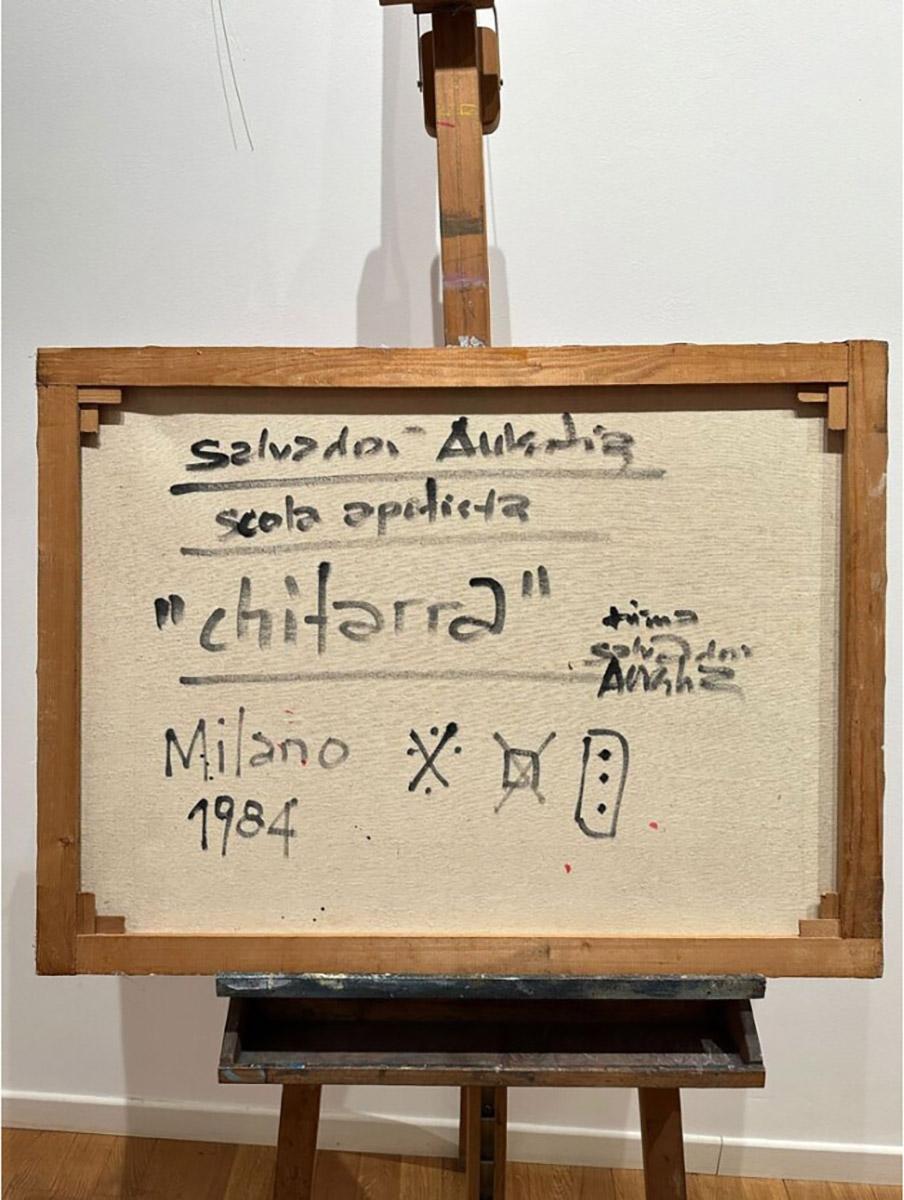 salvador Aulestia
scola apotista
"chitarra"
firma
salvador
Milano
1984